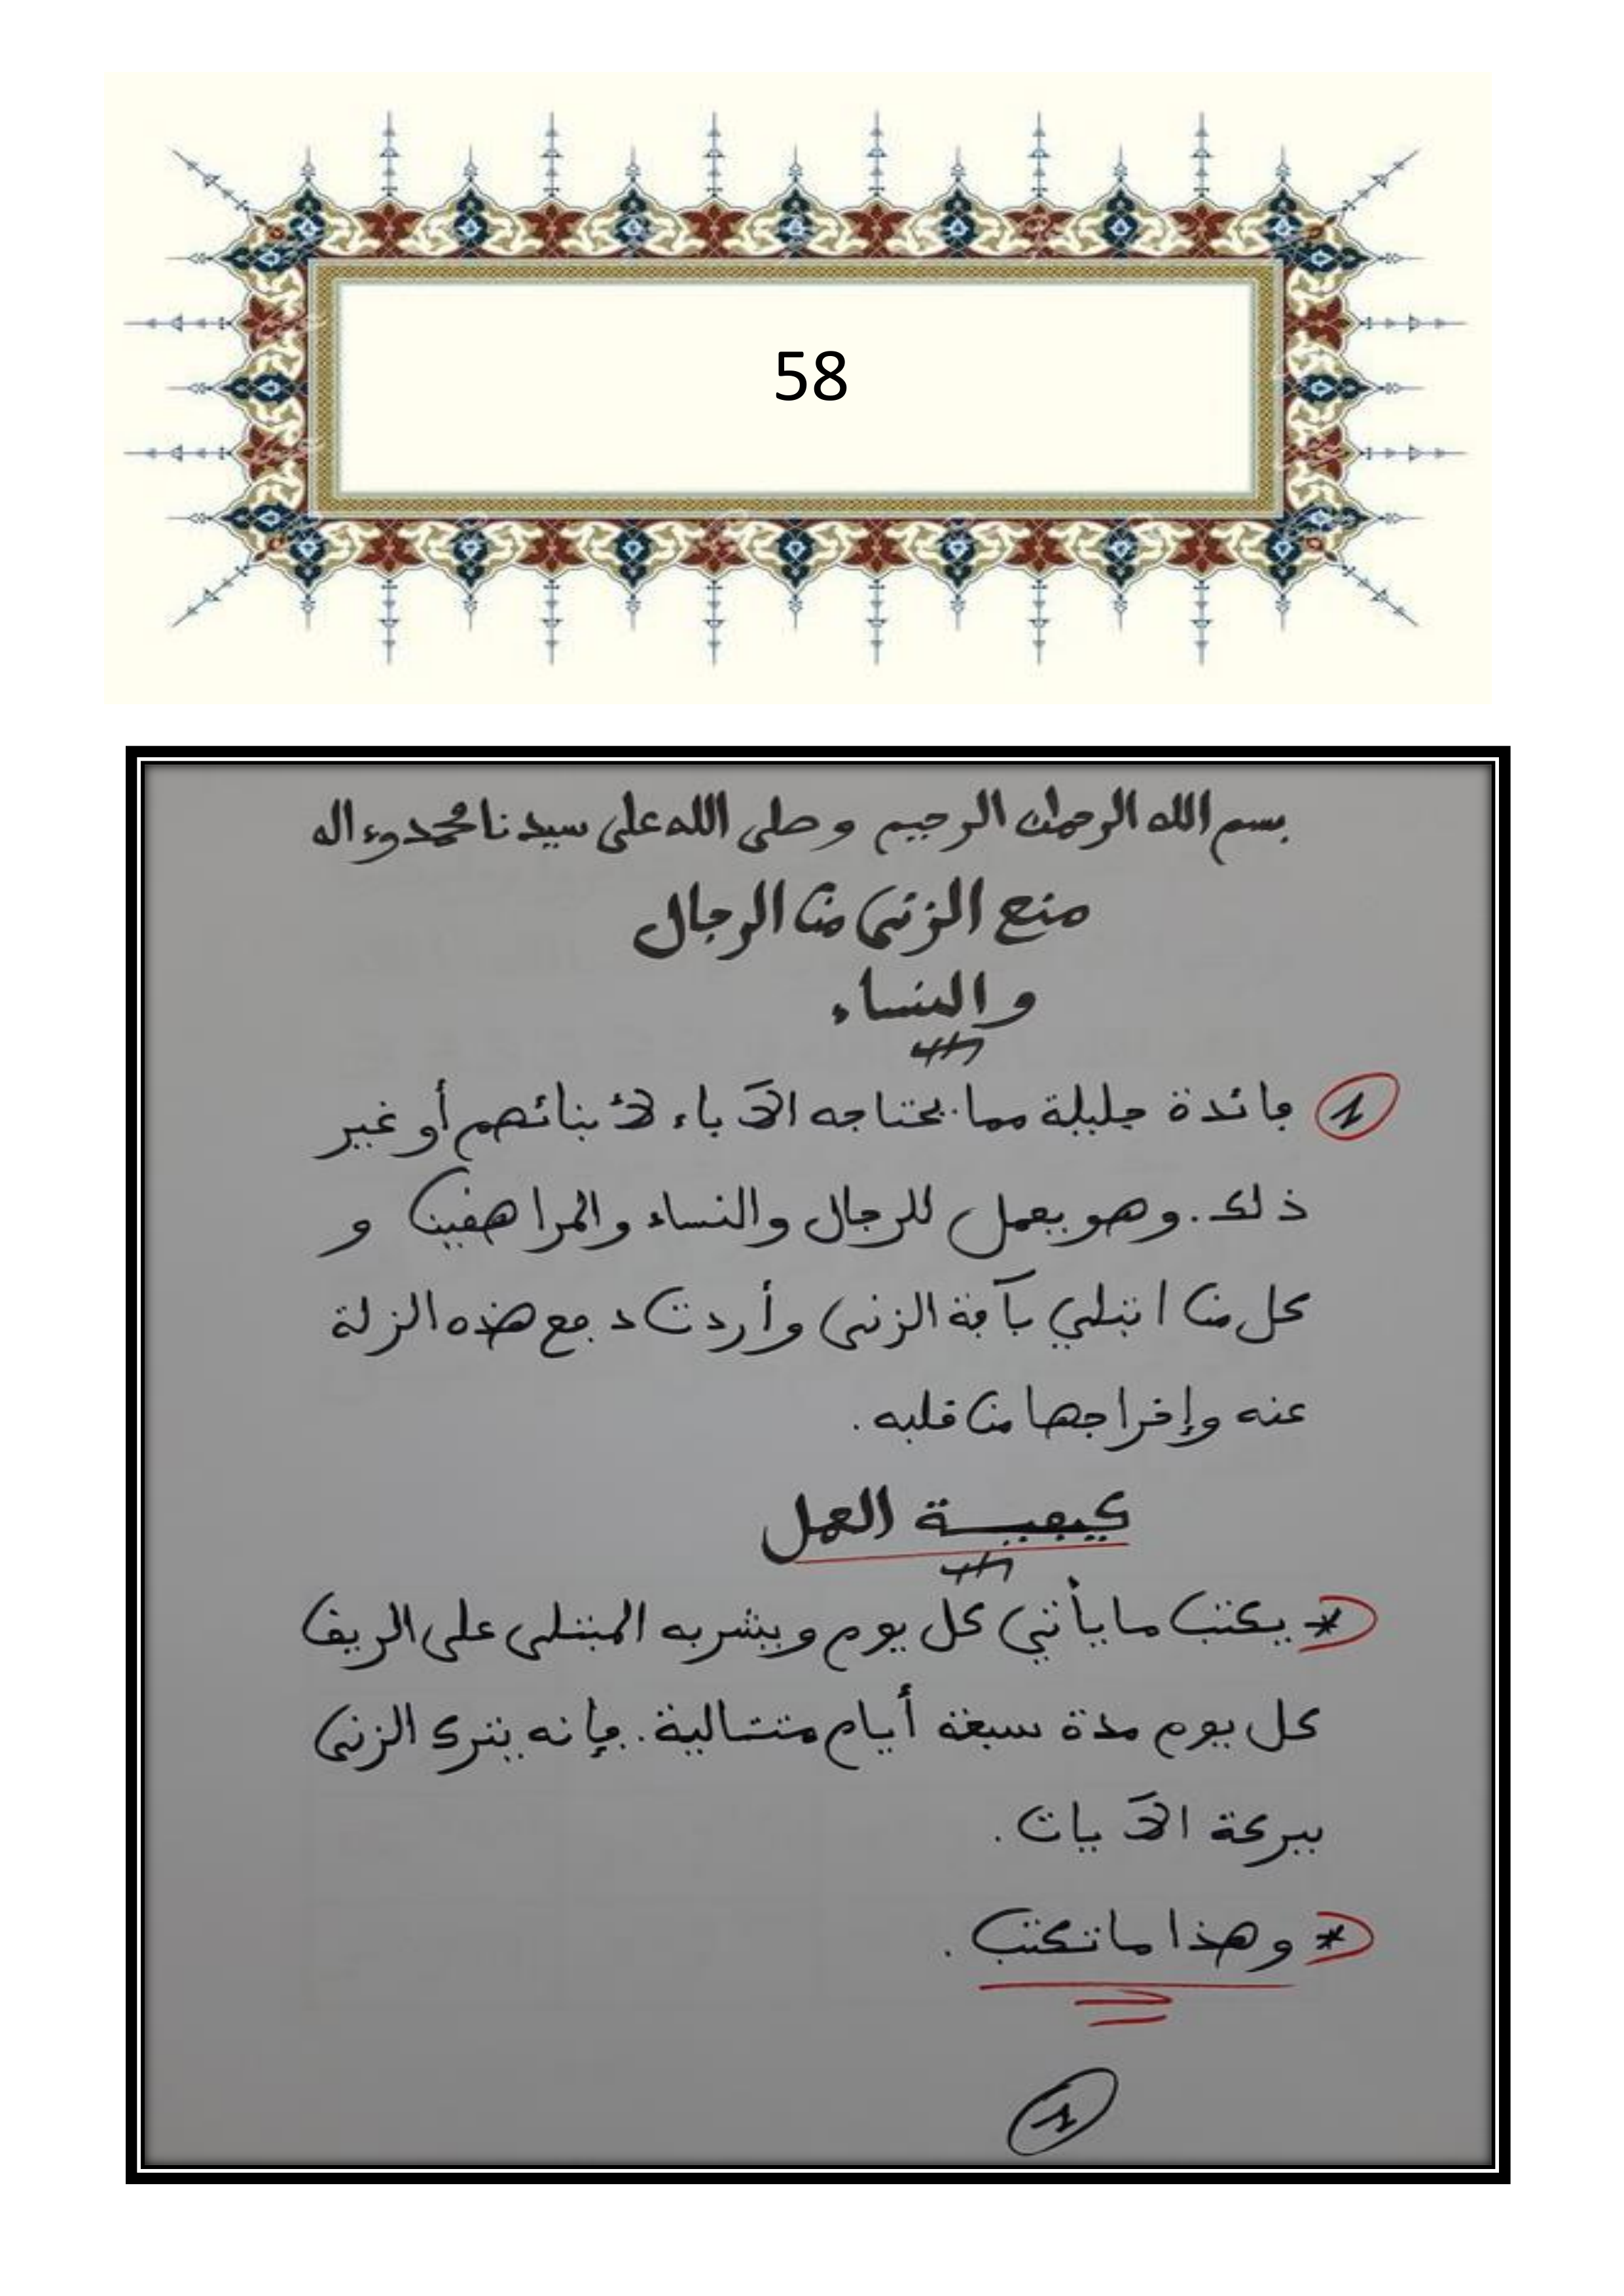 58
بسم الله الرحمان الرحيم وصلى الله على سيدنا محمد وءاله
منع الزنى من الرجال
والنساء
1 فائدة جليلة مما يحتاجه الآباء لأبنائهم أو غير
ذلك. وهو يعمل للرجال والنساء والمراهقين و
كل من ابتلي بآفة الزنى وأردت دفع هذه الزلة
عنه وإخراجها من قلبه.
كيفية العمل
* يكتب ما يأتي كل يوم ويشربه المبتلى على الريق
كل يوم مدة سبعة أيام متتالية. فإنه يترك الزنى
ببركة الآيات.
* وهذا ما تكتب.
1